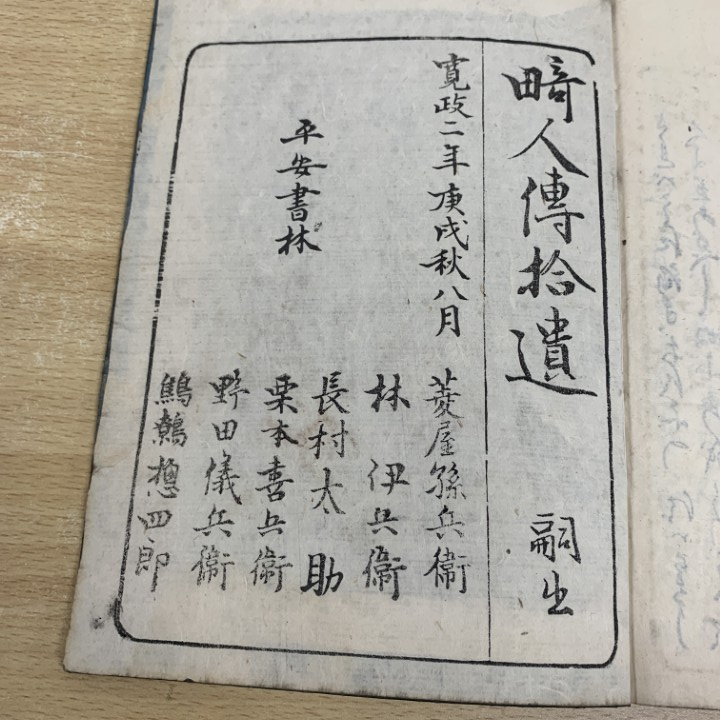 畸人傳拾遺 嗣出
寛政二年庚戌秋八月
平安書林
菱屋孫兵衞
林 伊兵衞
長村太助
栗本喜兵衞
野田儀兵衞
鷦鷯惣四郎